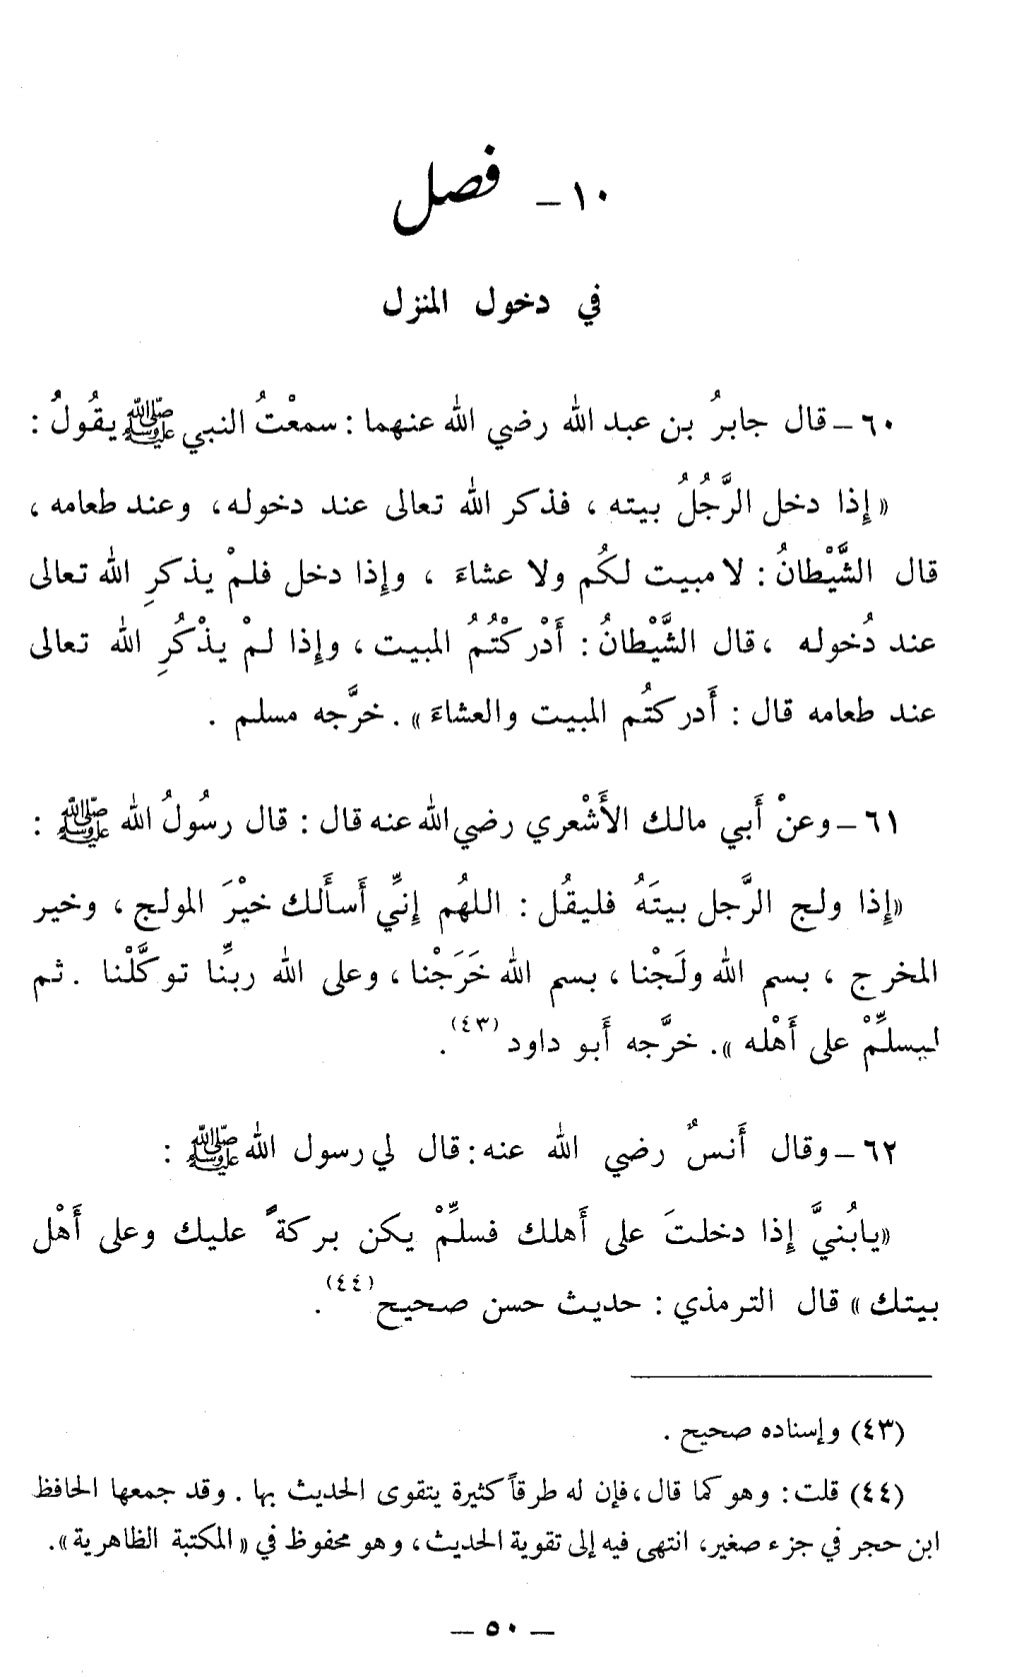 ١٠ - فصل
في دخول المنزل
٦٠ - قال جابرُ بن عبد الله رضي الله عنهما : سمعْتُ النبي ﷺ يقُولُ :
« إِذا دخل الرَّجُلُ بيته ، فذكر الله تعالى عند دخوله، وعند طعامه ،
قال الشَّيْطانُ : لا مبيت لكُم ولا عشاءَ ، وإِذا دخل فلمْ يذكرِ الله تعالى
عند دُخوله ، قال الشَّيْطانُ : أَدْركْتُمُ المبيت ، وإِذا لمْ يذْكُرِ الله تعالى
عند طعامه قال : أَدركتُم المبيت والعشاءَ » . خرَّجه مسلم .
٦١ - وعنْ أَبي مالك الأَشْعري رضي الله عنه قال : قال رسُولُ الله ﷺ :
«إِذا ولج الرَّجل بيتَهُ فليقُل : اللهُم إِنِّي أَسأَلك خيْرَ المولج ، وخير
المخرج ، بسم الله ولَجْنا ، بسم الله خَرَجْنا ، وعلى الله ربِّنا توكَّلْنا . ثم
ليسلِّمْ على أَهْله » . خرَّجه أَبو داود (٤٣) .
٦٢ - وقال أَنسٌ رضي الله عنه : قال لي رسول الله ﷺ :
«يابُنيَّ إِذا دخلتَ على أَهلك فسلِّمْ يكن بركةً عليك وعلى أَهْل
بيتك » قال الترمذي : حديث حسن صحيح (٤٤) .
(٤٣) وإسناده صحيح .
(٤٤) قلت : وهو كما قال ، فإن له طرقاً كثيرة يتقوى الحديث بها . وقد جمعها الحافظ
ابن حجر في جزء صغير، انتهى فيه إلى تقوية الحديث ، وهو محفوظ في « المكتبة الظاهرية».
- ٥٠ -